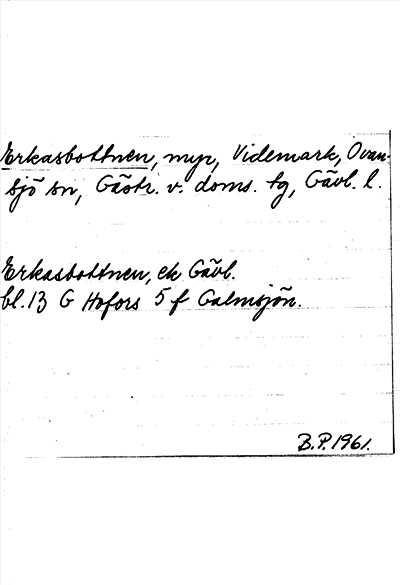 Erkasbottnen, myr, Videmark, Ovan-
sjö sn, Gästr. v. doms. tg, Gävl. l.
Erkasbottnen, ek Gävl.
bl. 13 G Hofors 5 f Galmsjön.
B.P. 1961.